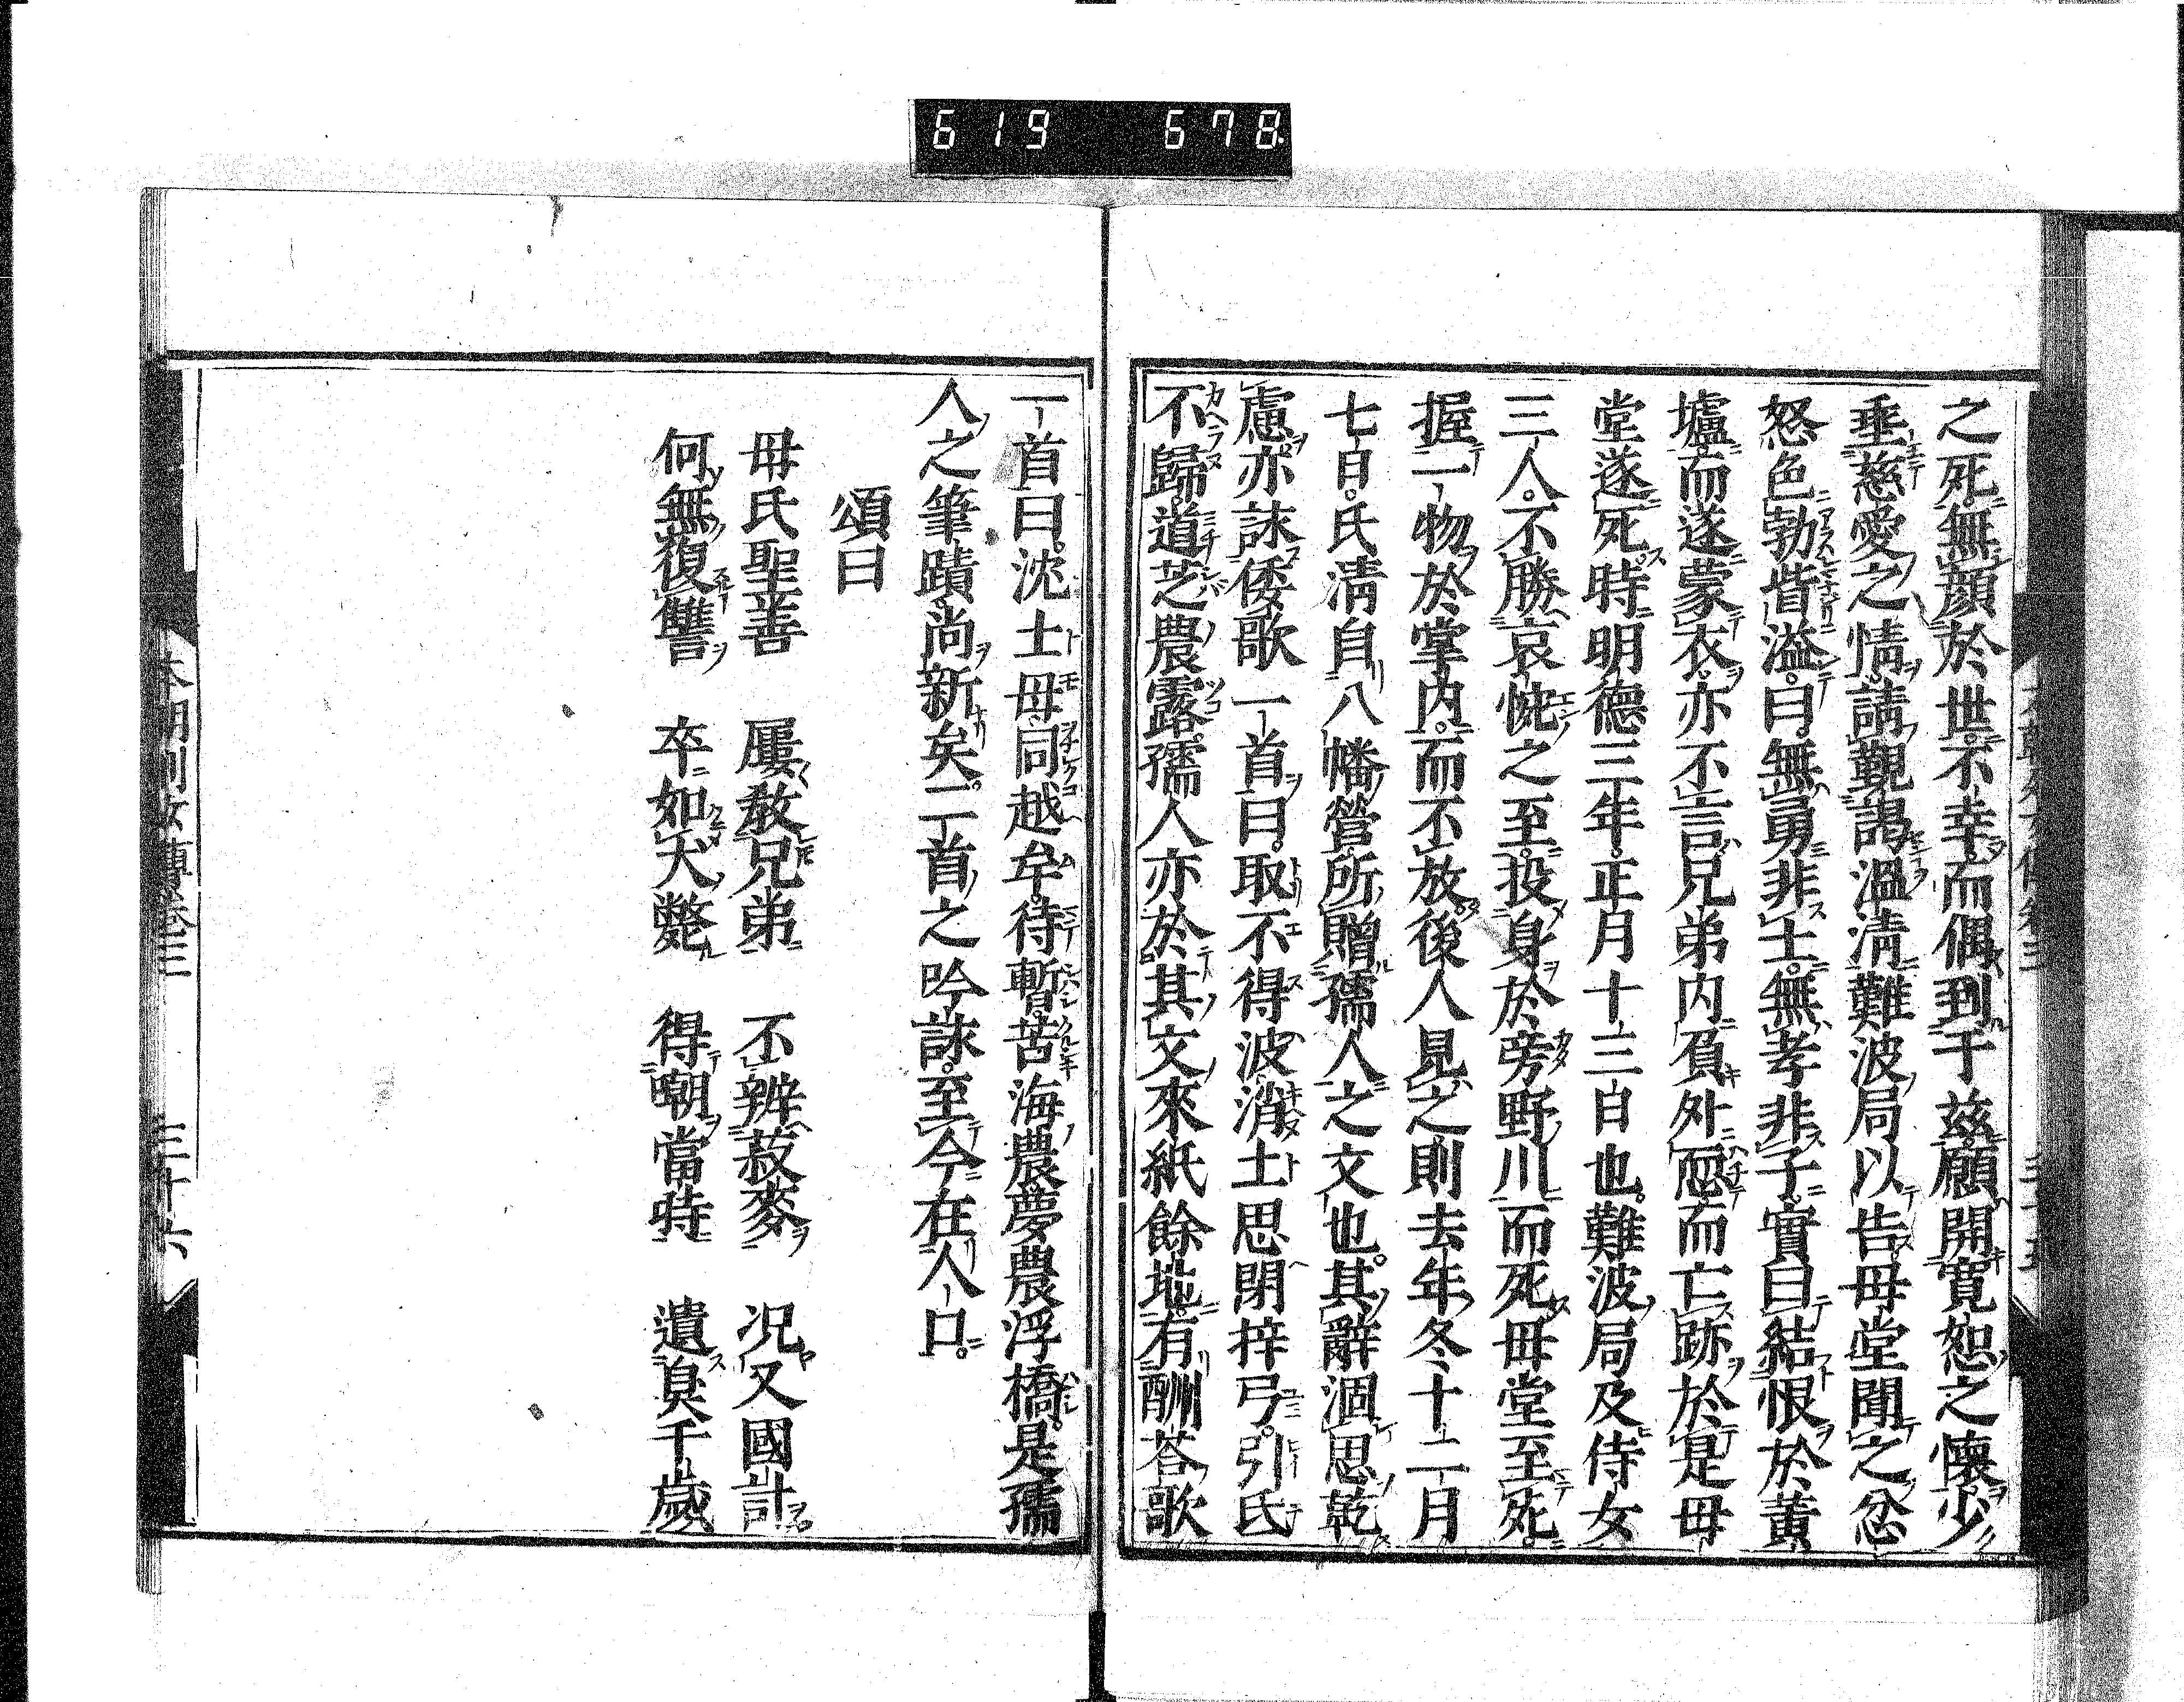 619 678
之死無顔於世不幸而偶到于茲願開寛恕之懷少
垂慈愛之情請覲謁温凊難波局以告母堂聞之忿
怒色勃眥溢曰無勇非士無孝非子實曰結恨於黄
壚而遂蒙衣亦不言兄弟内負外恧而亡跡於是母
堂遂死時明德三年正月十三日也難波局及侍女
三人不勝哀惋之至投身於旁野川而死母堂至死
握一物於掌内而不放後人見之則去年冬十二月
七日氏清自八幡營所贈孺人之文也其辭涸思乾
慮亦詠倭歌一首曰取不得波消土思閉梓弓引氏
不歸道芝農露孺人亦於其文來紙餘地有酬荅歌
一首曰沈土母同越牟待暫苦海農夢農浮橋是孺
人之筆蹟尚新矣二首之吟詠至今在人口
頌曰
母氏聖善 屢教兄弟 不辨菽麥 况又國計
何無復讐 卒如犬斃 得嘲當時 遺臭千歲
本朝列女傳卷三 三十六